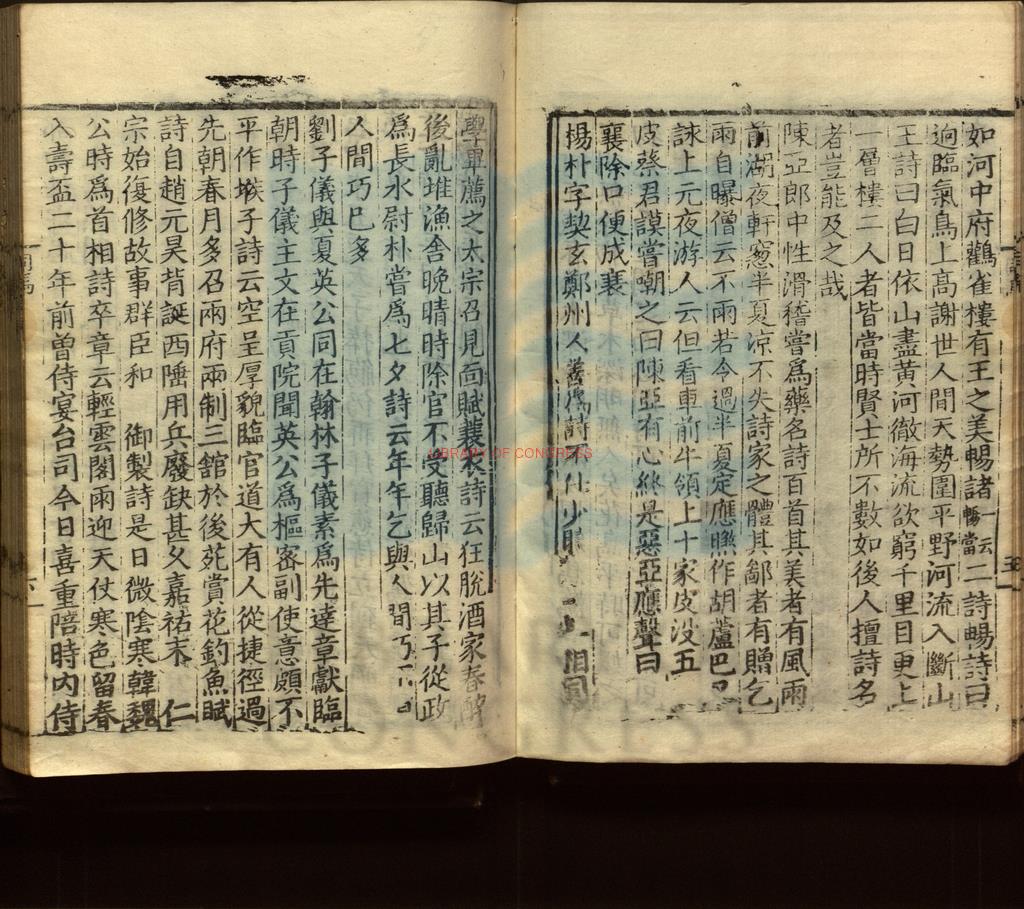 如河中府鸛雀樓有王之美暢諸一云暢當二詩暢詩曰
逈臨氣鳥上高謝世人間天勢圍平野河流入斷山
王詩曰白日依山盡黄河徹海流欲窮千里目更上
一層樓二人者皆當時賢士所不數如後人擅詩名
者豈能及之哉
陳亞郎中性滑稽嘗爲藥名詩百首其美者有風雨
前湖夜軒窓半夏凉不失詩家之體其鄙者有贈乞
雨自曝僧云不雨若令過半夏定應㬠作胡蘆巴又
詠上元夜游人云但看車前牛領上十家皮没五
皮蔡君謨嘗嘲之曰陳亞有心終是惡亞應聲曰
襄除口便成衰
楊朴字契玄鄭州人善爲詩不仕少
學畢薦之太宗召見面賦蓑衣詩云狂脫酒家春醉
後亂堆漁舍晚晴時除官不受聽歸山以其子從政
爲長水尉朴嘗爲七夕詩云年年乞與人間巧不
人間巧巳多
劉子儀與夏英公同在翰林子儀素爲先達章獻臨
朝時子儀主文在貢院聞英公爲樞密副使意頗不
平作堠子詩云空呈厚貌臨官道大有人從捷徑過
先朝春月多召兩府兩制三舘於後苑賞花釣魚賦
詩自趙元昊背誕西陲用兵廢缺甚久嘉祐末 仁
宗始復修故事群臣和 御製詩是日微陰寒韓魏
公時爲首相詩卒章云輕雲閣雨迎天仗寒色留春
入壽盃二十年前曾侍宴台司今日喜重陪時内侍
LIBRARY OF CONGRESS